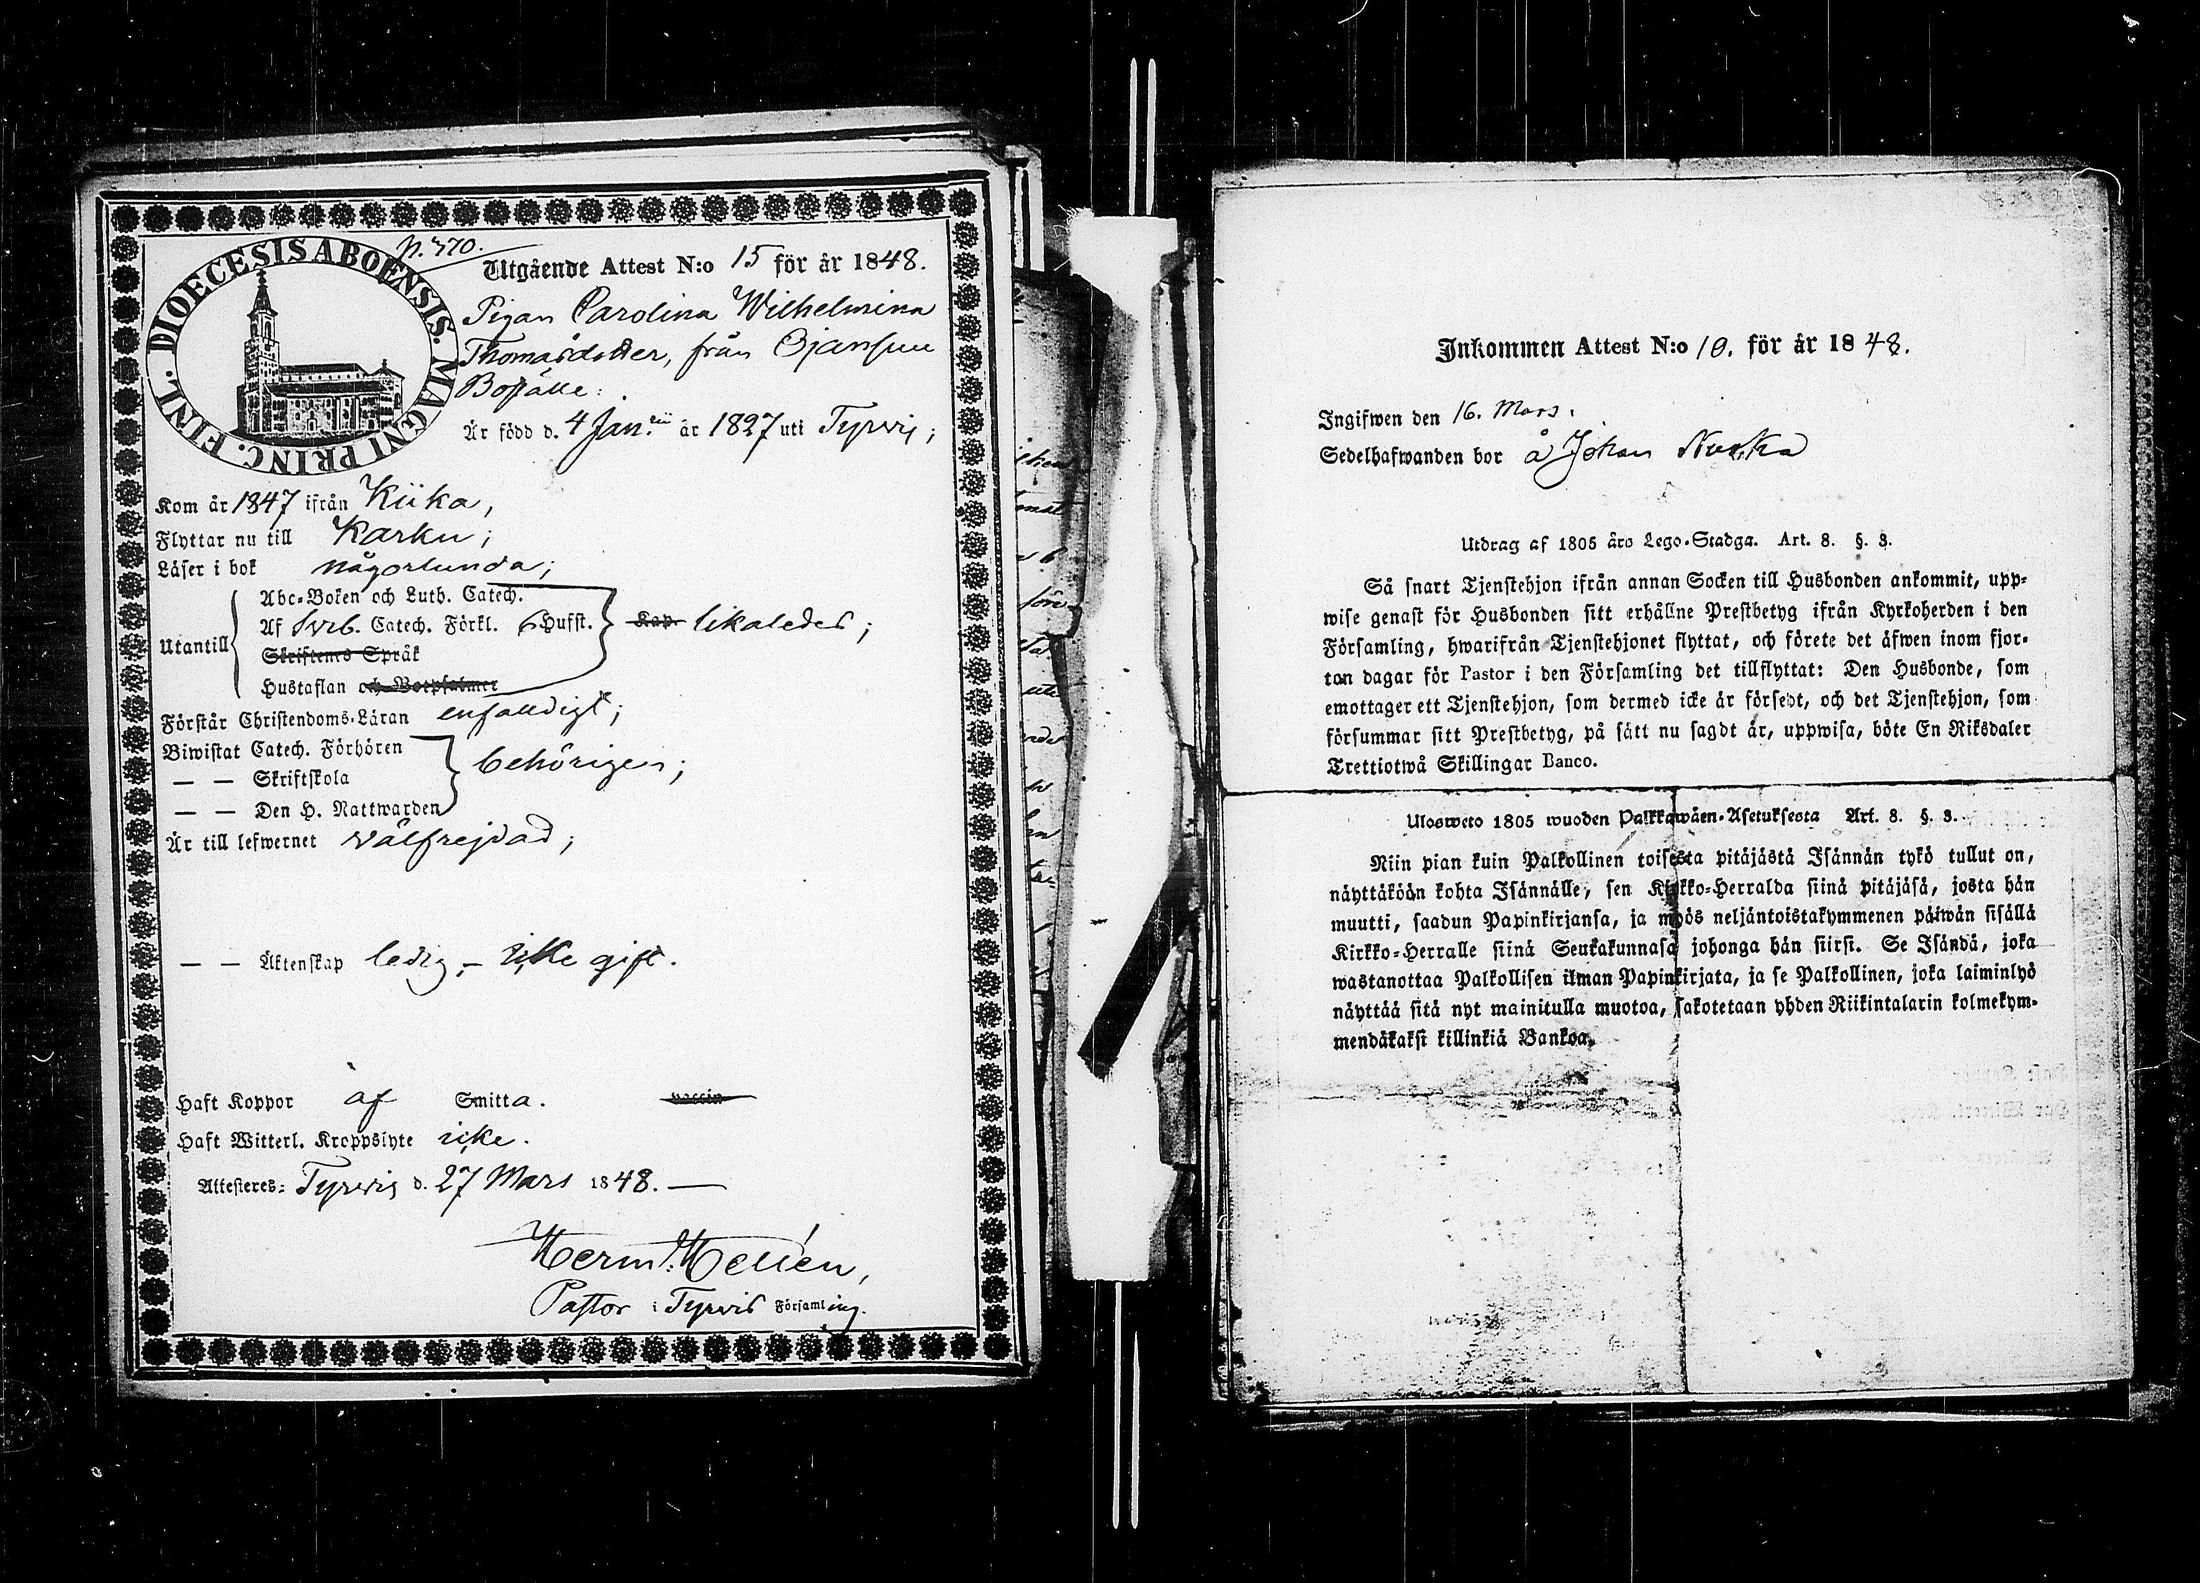 N. 770.
DIOECESIS ABOENSIS. MAGNI PRINC. FINL.
Utgående Attest N:o 15 för år 1848.
Pigan Carolina Wilhelmina
Thomasdotter, från Ojansuu
Boställe:
Är född d. 4 Jan.rii år 1827 uti Tyrvis;
Kom år 1847 ifrån Kiika,
Flyttar nu till Karku;
Läser i bok någorlunda;
Utantill
Abc-Boken och Luth. Catech.
Af Sveb. Catech. Förkl. 6 Hufst. Kap. likaledes;
Skriftenes Språk
Hustaflan och Botpsalmer
Förstår Christendoms-Läran enfaldigt;
Biwistat Catech. Förhören
— — Skriftskola behörigen;
— — Den H. Nattwarden
Är till lefwernet välfrejdad;
— — Äktenskap ledig, – icke gift.
Haft Koppor af Smitta. vaccin
Haft Witterl. Kroppslyte icke.
Attesteres: Tyrvis d. 27 Mars 1848. —
Herm. Hellén,
Pastor i Tyrvis Församling.
Inkommen Attest N:o 10. för år 1848.
Ingifwen den 16. Mars.
Sedelhafwanden bor å Johan
Utdrag af 1805 åro Lego-Stadga. Art. 8. §. 3.
Så snart Tjenstehjon ifrån annan Socken till Husbonden ankommit, upp-
wise genast för Husbonden sitt erhållne Prestbetyg ifrån Kyrkoherden i den
Församling, hwarifrån Tjenstehjonet flyttat, och förete det äfwen inom fjor-
ton dagar för Pastor i den Församling det tillflyttat: Den Husbonde, som
emottager ett Tjenstehjon, som dermed icke är försedt, och det Tjenstehjon, som
försummar sitt Prestbetyg, på sätt nu sagdt är, uppwisa, böte En Riksdaler
Trettiotwå Skillingar Banco.
Ulosweto 1805 wuoden Palkkawäen-Asetuksesta Art. 8. §. 3.
Niin pian kuin Palkollinen toisesta pitäjästä Isännän tykö tullut on,
näyttäköön kohta Isännälle, sen Kirkko-Herralda siinä pitäjäsä, josta hän
muutti, saadun Papinkirjansa, ja myös neljäntoistakymmenen päiwän sisällä
Kirkko-Herralle siinä Seurakunnasa johonga hän siirsi. Se Isändä, joka
wastanottaa Palkollisen ilman Papinkirjata, ja se Palkollinen, joka laiminlyö
näyttää sitä nyt mainitulla muotoa, sakotetaan yhden Riikintalarin kolmekym-
mendäkaksi killinkiä Bankoa.